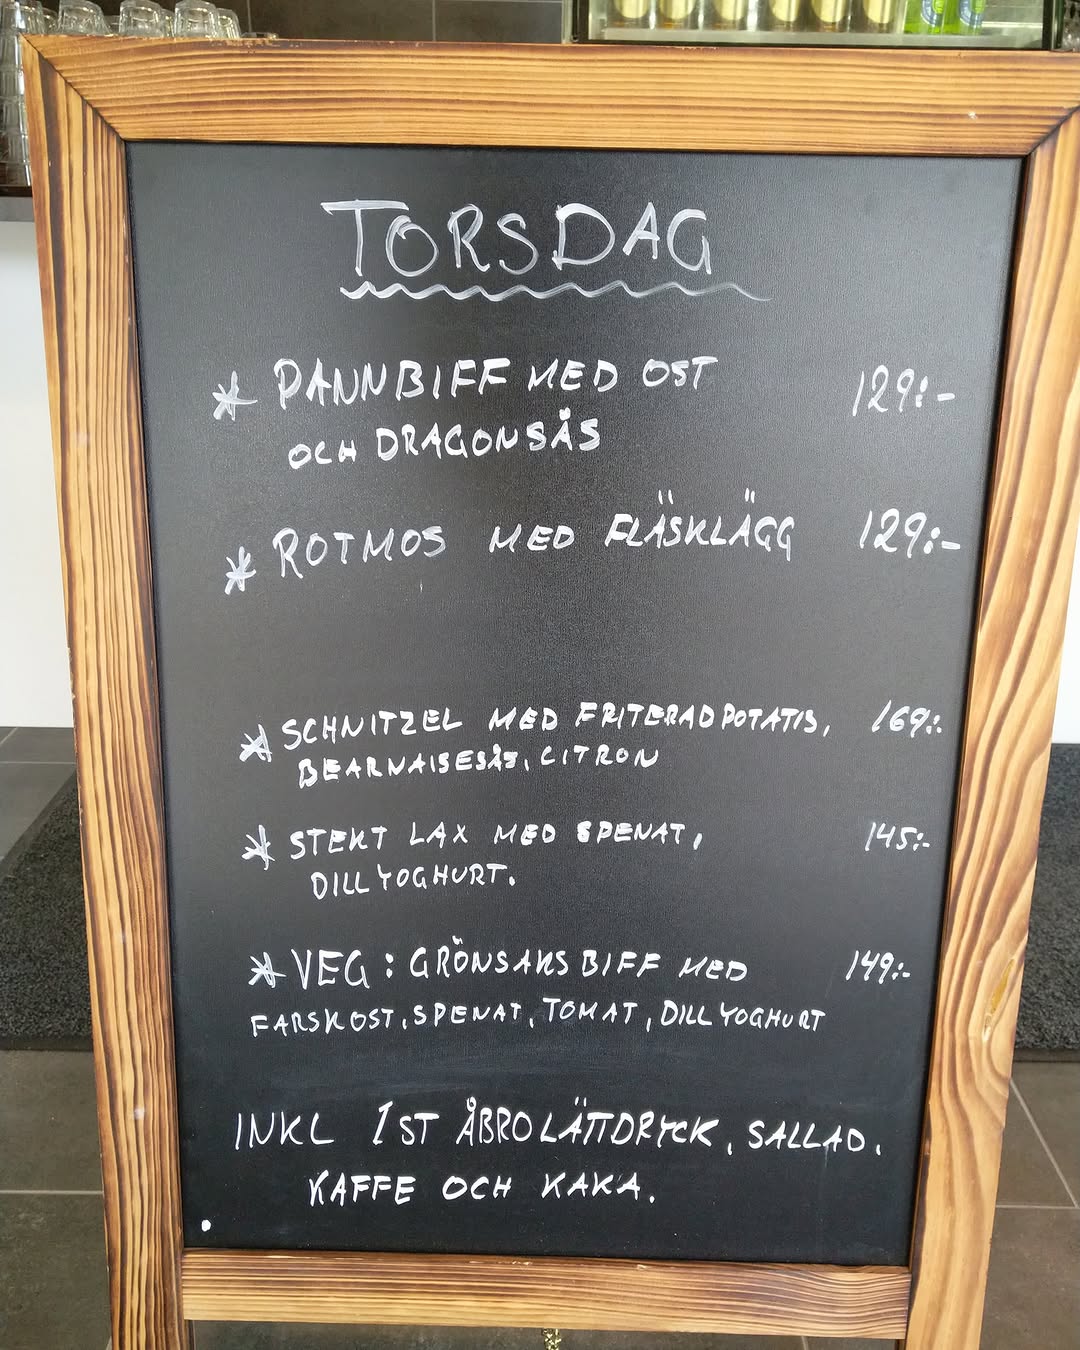 TORSDAG
* PANNBIFF MED OST 129:-
OCH DRAGONSÅS
* ROTMOS MED FLÄSKLÄGG 129:-
* SCHNITZEL MED FRITERAD POTATIS, 169:-
BEARNAISESÅS, CITRON
* STEKT LAX MED SPENAT, 145:-
DILLYOGHURT.
* VEG: GRÖNSAKSBIFF MED 149:-
FARSKOST, SPENAT, TOMAT, DILLYOGHURT
INKL 1ST ÅBRO LÄTTDRYCK, SALLAD,
KAFFE OCH KAKA.